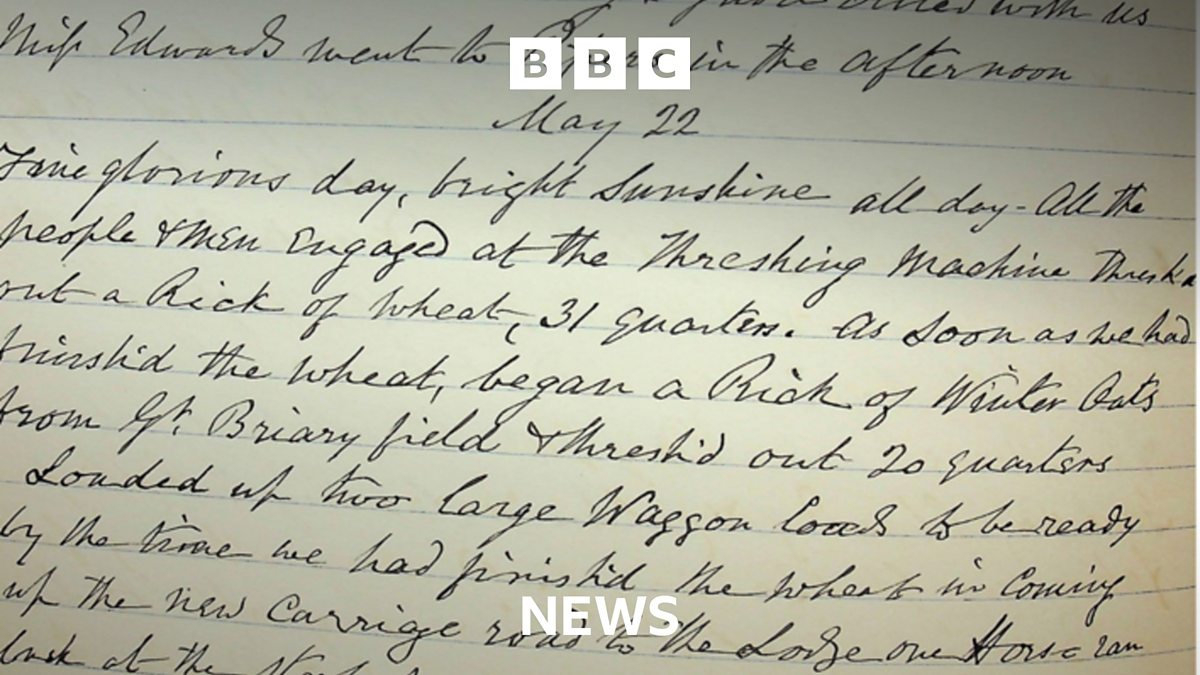 with us
Miss Edwards went to in the afternoon
BBC
May 22
Fine glorious day, bright sunshine all day - All the
people & men engaged at the Threshing Machine Thresh
out a Rick of wheat, 31 quarters. As soon as we had
finish'd the wheat, began a Rick of Winter Oats
from Gt. Briary field & thresh'd out 20 quarters
Loaded up two large Waggon loads to be ready
by the time we had finish'd the wheat in coming
up the new carriage road to the Lodge one Horse ran
NEWS
back at the